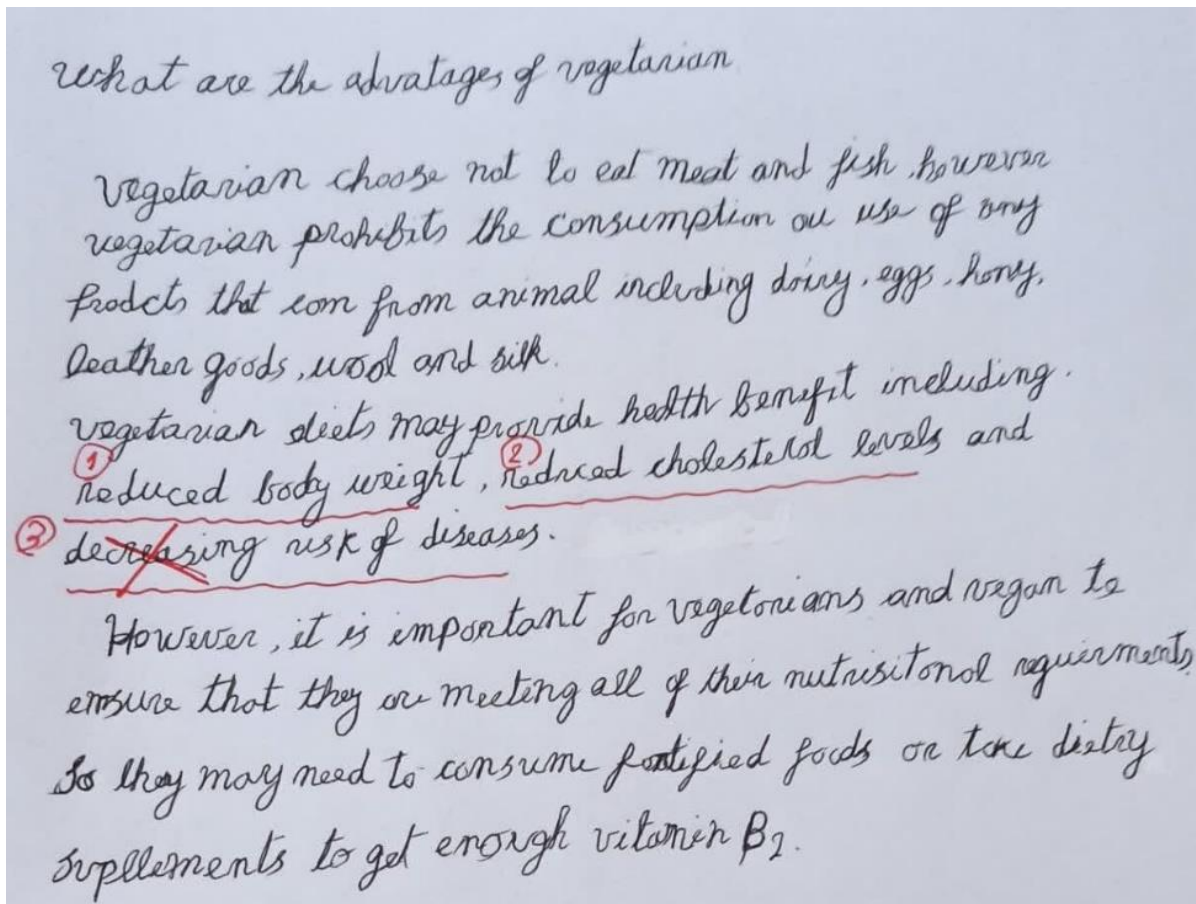 What are the advatages of vegetarian
Vegetarian choose not to eat meat and fish, however
vegetarian prohibits the consumption ou use of any
prodcts that com from animal including dairy, eggs, hony,
leather goods, wool and silk.
vegetarian diets may provide health benefit including.
① reduced body weight, ② reduced cholesterol levels and
③ decreasing risk of diseases.
However, it is important for vegetarians and vegan to
ensure that they are meeting all of their nutrisitonal requierments,
So they may need to consume fortified foods or take dietry
supllements to get enough vitamin B2.